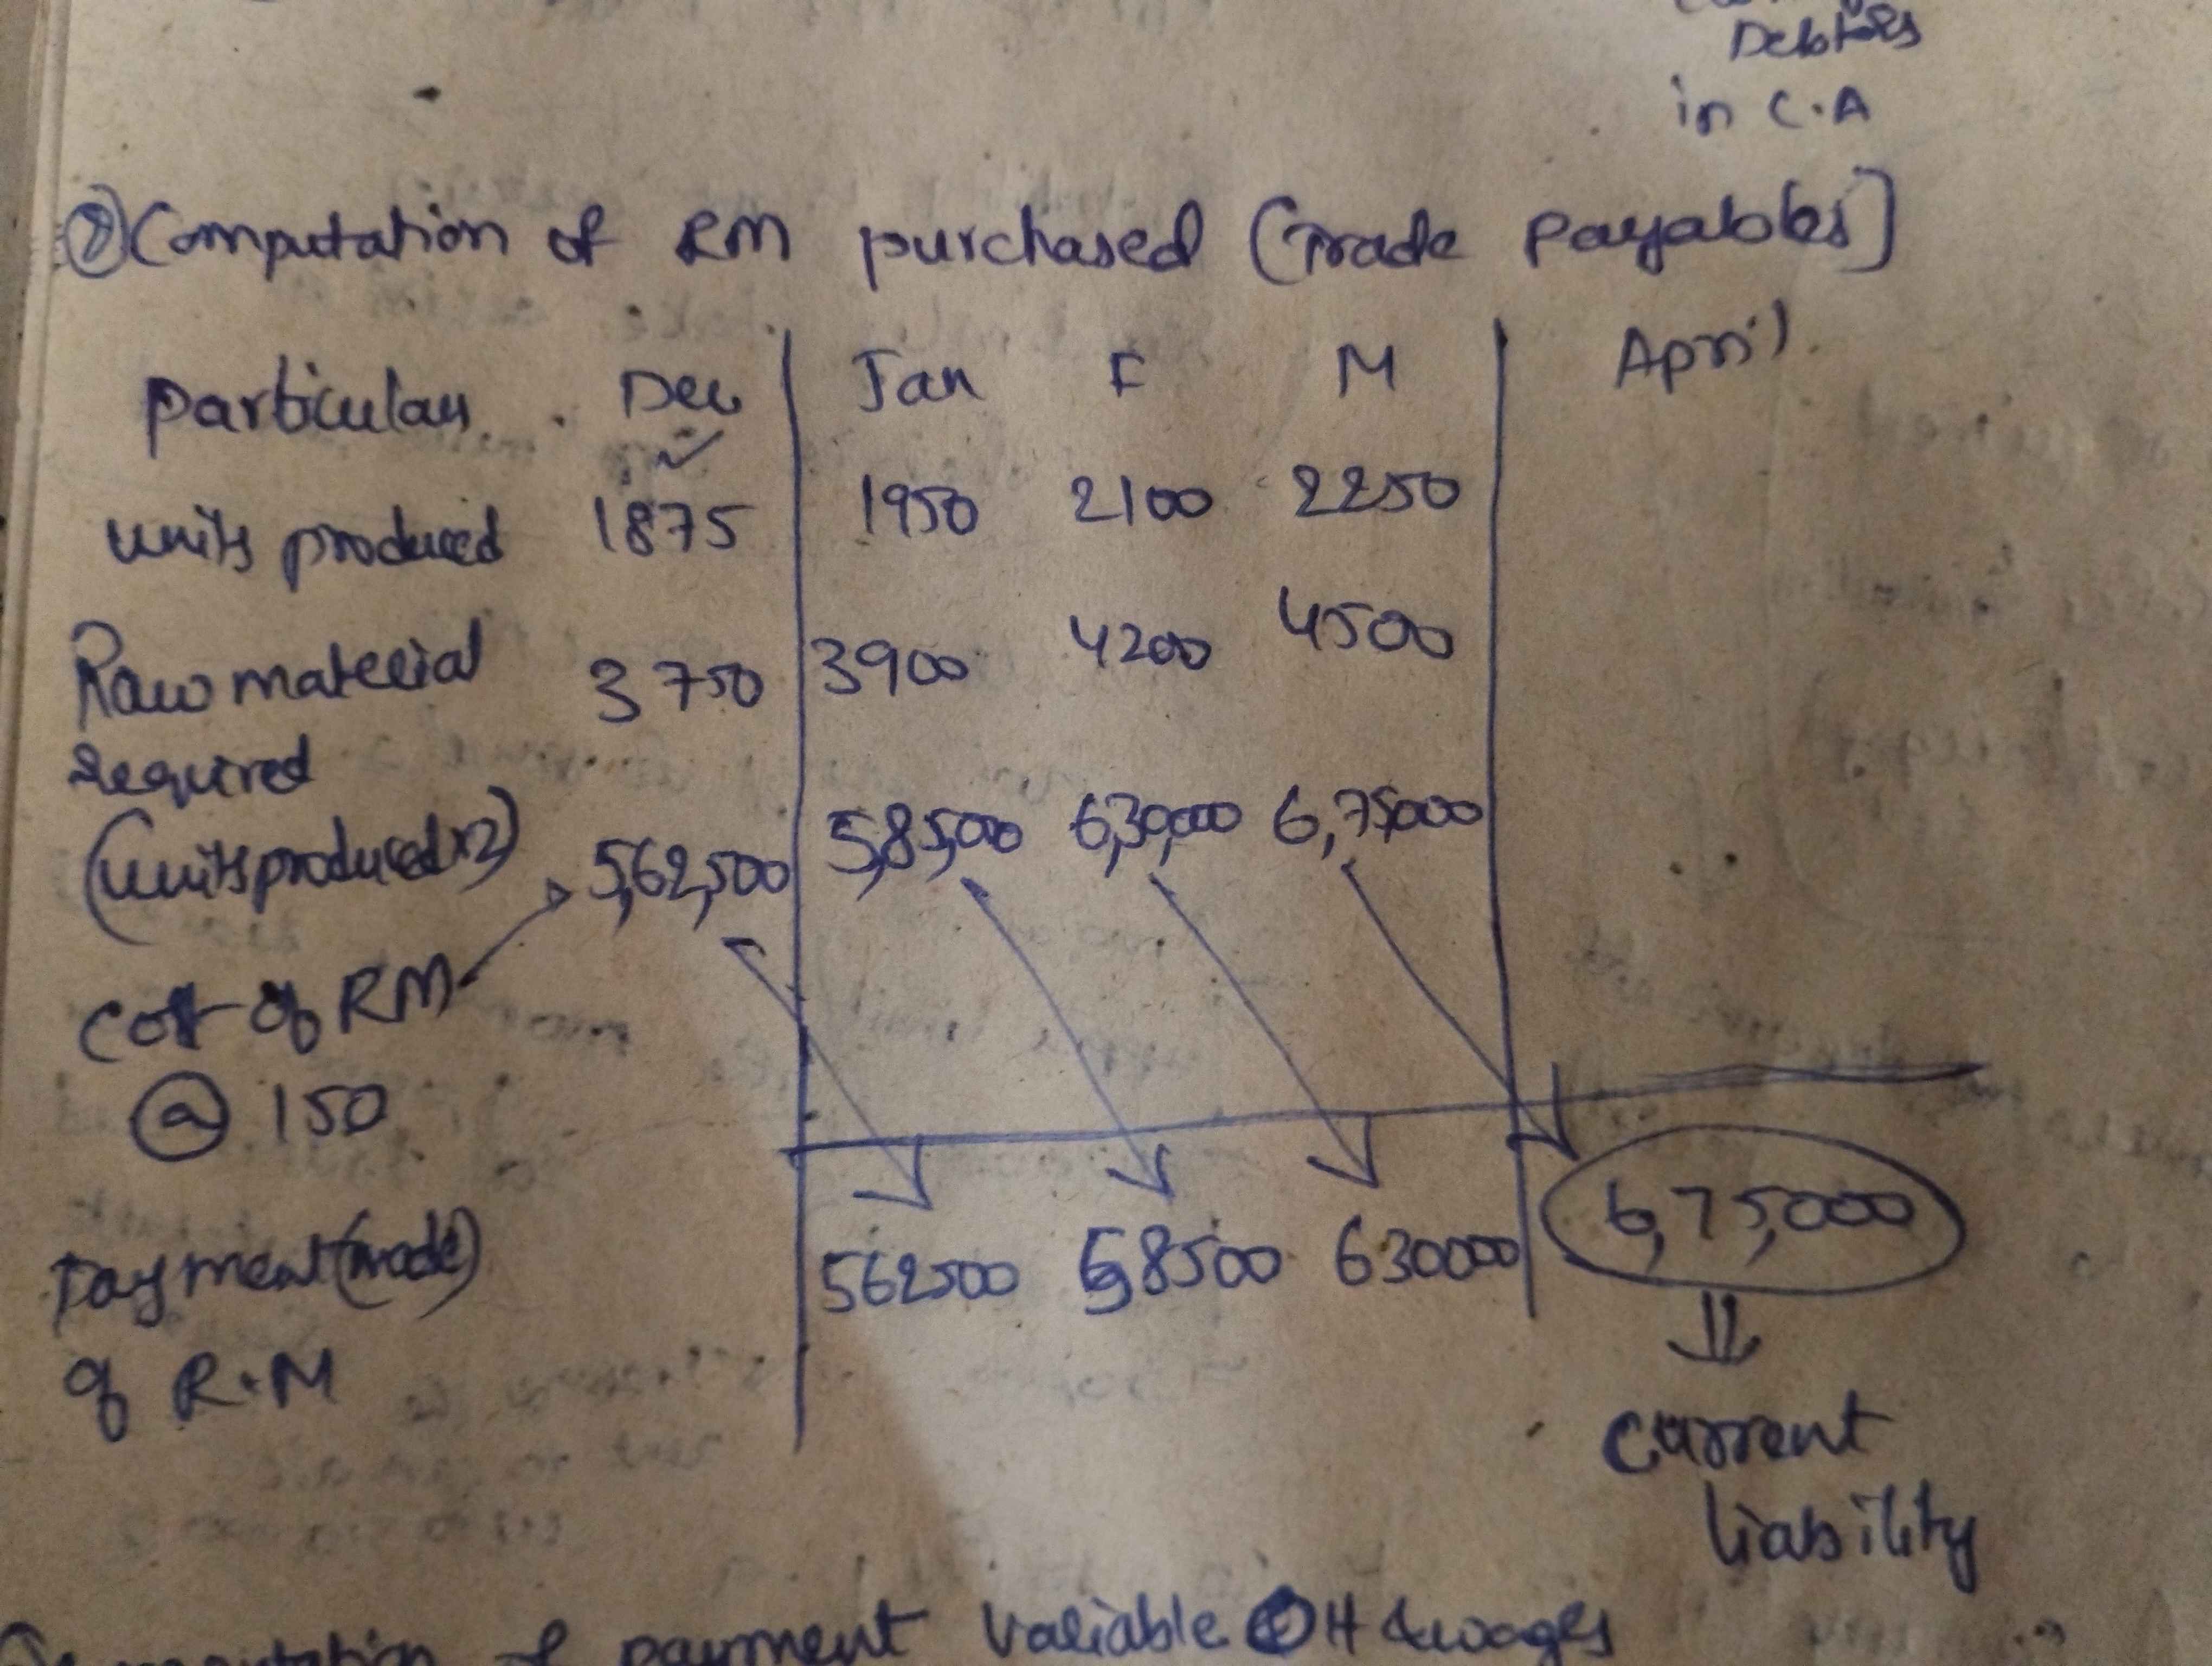 Debtors
in C.A
② Computation of RM purchased (Trade Payables]
particulars Dec Jan F M April
units produced 1875 1950 2100 2250
Raw material 3750 3900 4200 4500
required
(units produced x2) 5,62,500 5,85,000 6,30,000 6,75,000
cost of RM
@ 150
Payment (made) 562500 58500 630000 6,75,000
of R.M
current
liability
of payment variable OH & wages